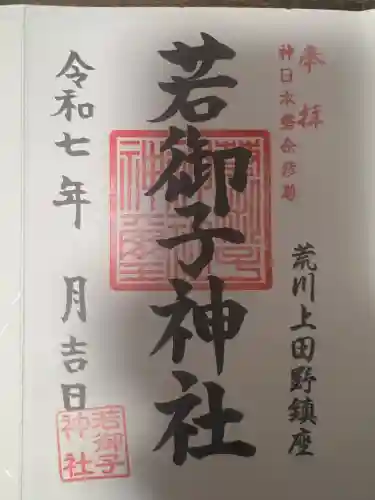 奉拝
神日本磐余彦尊
荒川上田野鎮座
若御子神社
令和七年 月吉日
若御子
神社